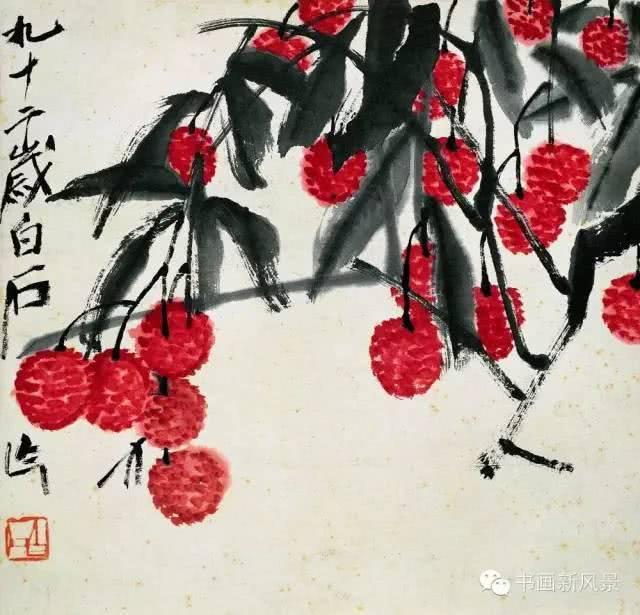 九十二歲白石
书画新风景